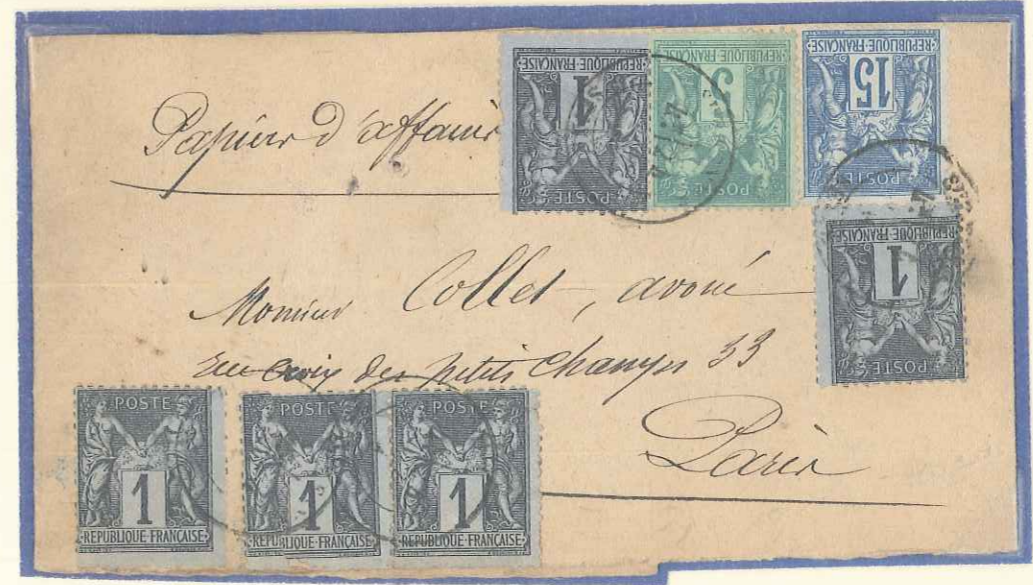 Papiers d'affaires
1
REPUBLIQUE-FRANÇAISE
POSTE
5
REPUBLIQUE-FRANÇAISE
POSTE
15
REPUBLIQUE-FRANÇAISE
POSTE
1
REPUBLIQUE-FRANÇAISE
POSTE
Monsieur Collet, avoué
rue croix des petits champs 33
Paris
POSTE
1
REPUBLIQUE-FRANÇAISE
POSTE
1
REPUBLIQUE-FRANÇAISE
POSTE
1
REPUBLIQUE-FRANÇAISE